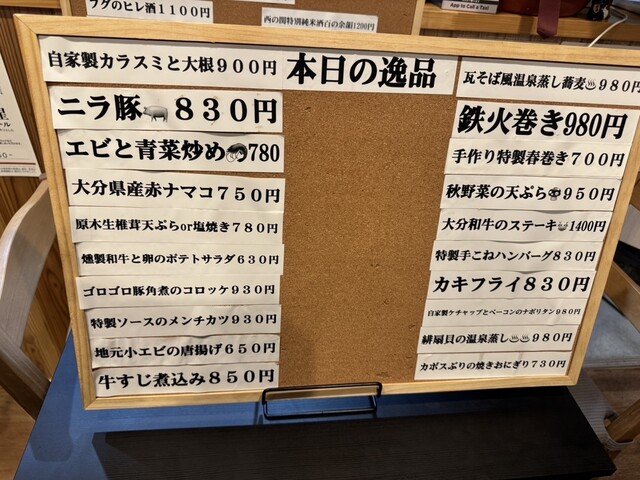 フグのヒレ酒1100円
西の関特別純米酒百の余韻1200円
App to Call a Taxi
本日の逸品
自家製カラスミと大根900円
ニラ豚830円
エビと青菜炒め780
大分県産赤ナマコ750円
原木生椎茸天ぷらor塩焼き780円
燻製和牛と卵のポテトサラダ630円
ゴロゴロ豚角煮のコロッケ930円
特製ソースのメンチカツ930円
地元小エビの唐揚げ650円
牛すじ煮込み850円
瓦そば風温泉蒸し蕎麦♨980円
鉄火巻き980円
手作り特製春巻き700円
秋野菜の天ぷら950円
大分和牛のステーキ1400円
特製手こねハンバーグ830円
カキフライ830円
自家製ケチャップとベーコンのナポリタン980円
緋扇貝の温泉蒸し♨♨980円
カボスぶりの焼きおにぎり730円